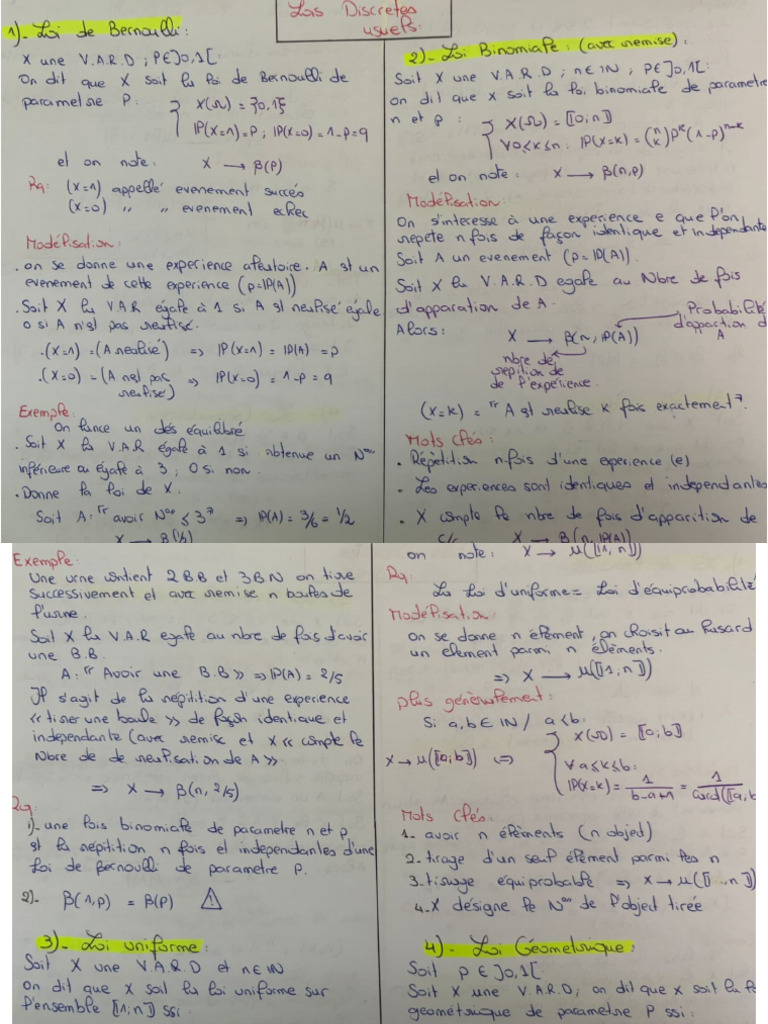 Lois Discretes
usuels:
1)- Loi de Bernoulli:
X une V.A.R.D ; P∈]0,1[:
On dit que X soit la loi de Bernoulli de
parametre P: { X(Ω) = {0,1}
IP(X=1)=P ; IP(X=0)=1-P=q
et on note: X → β(P)
Rq: (X=1) appellé evenement succés
(X=0) " " evenement echec
Modélisation:
. on se donne une experience aleatoire. A st un
evenement de cette experience (p=IP(A))
. Soit X la V.A.R égale à 1 si A st realisé égale
0 si A n'st pas realisé.
.(X=1)=(A realisé) => IP(X=1) = IP(A) = P
.(X=0)=(A nst pas => IP(X=0) = 1-P = q
realisé)
Exemple:
On lance un dés équilibré
. Soit X la V.A.R égale à 1 si obtenue un Nᵒʳ
inférieure ou égale à 3 ; 0 si non.
. Donne la loi de X.
Soit A: " avoir Nᵒʳ ≤ 3" => IP(A) = 3/6 = 1/2
X → β(1/2)
2)- Loi Binomiale: (avec remise):
Soit X une V.A.R.D ; n∈IN ; P∈]0,1[:
on dit que X soit la loi binomiale de parametre
n et p : { X(Ω) = [[0;n]]
∀0≤k≤n: IP(X=k) = (n k) P^k (1-P)^n-k
et on note: X → β(n,p)
Modélisation:
On s'interesse à une experience e que l'on
repete n fois de façon identique et independante
Soit A un evenement (p=IP(A).
Soit X la V.A.R.D egale au Nbre de fois
d'apparation de A.
Probabilité
d'appartion d
A
Alors: X → β(n, IP(A))
nbre de
repition de
de l'expérience.
(X=k) = " A st realise K fois exactement".
Mots clés:
. Répètition n fois d'une experience (e)
. Les experiences sont identiques et independantes
. X compte le nbre de fois d'apparition de
X → β(n, IP(A))
Exemple:
Une urne contient 2 BB et 3 BN on tire
successivement et avec remise n boules de
l'urne.
Soit X la V.A.R egale au nbre de fois d'avoir
une B.B.
A: " Avoir une B.B >> => IP(A) = 2/5
Il s'agit de la répitition d'une experience
<< tirer une boule >> de façon identique et
independante (avec remise et X << compte le
Nbre de de realisation de A >>
=> X → β(n, 2/5)
Rq:
1)- une lois binomiale de parametre n et p
st la répitition n fois et independantes d'une
Loi de Bernoulli de parametre P.
2)- β(1,p) = β(P) ⚠
3)- Loi uniforme:
Soit X une V.A.R.D et n∈IN
on dit que X soit la loi uniforme sur
l'ensemble [[1;n]] ssi:
on note: X → μ([[1,n]])
Rq:
La Loi d'uniforme = Loi d'équiprobabilité
Modélisation:
on se donne n élément, on choisit au Hasard
un element parmi n éléments.
=> X → μ([[1;n]])
plus générèlement:
Si a,b∈IN / a<b:
X→μ([[a;b]]) <=> { X(Ω) = [[a;b]]
∀a≤k≤b:
IP(X=k) = 1/(b-a+1) = 1/card([[a,b
Mots clés:
1- avoir n élèments (n objed)
2- tirage d'un seul élément parmi les n
3- tirage equiprobable => X→μ([[1..,n]])
4- X désigne le Nᵒʳ de l'object tirée
4)- Loi Géometrique:
Soit p∈]0,1[
Soit X une V.A.R.D; on dit que X soit la l
geométrique de parametre P ssi: